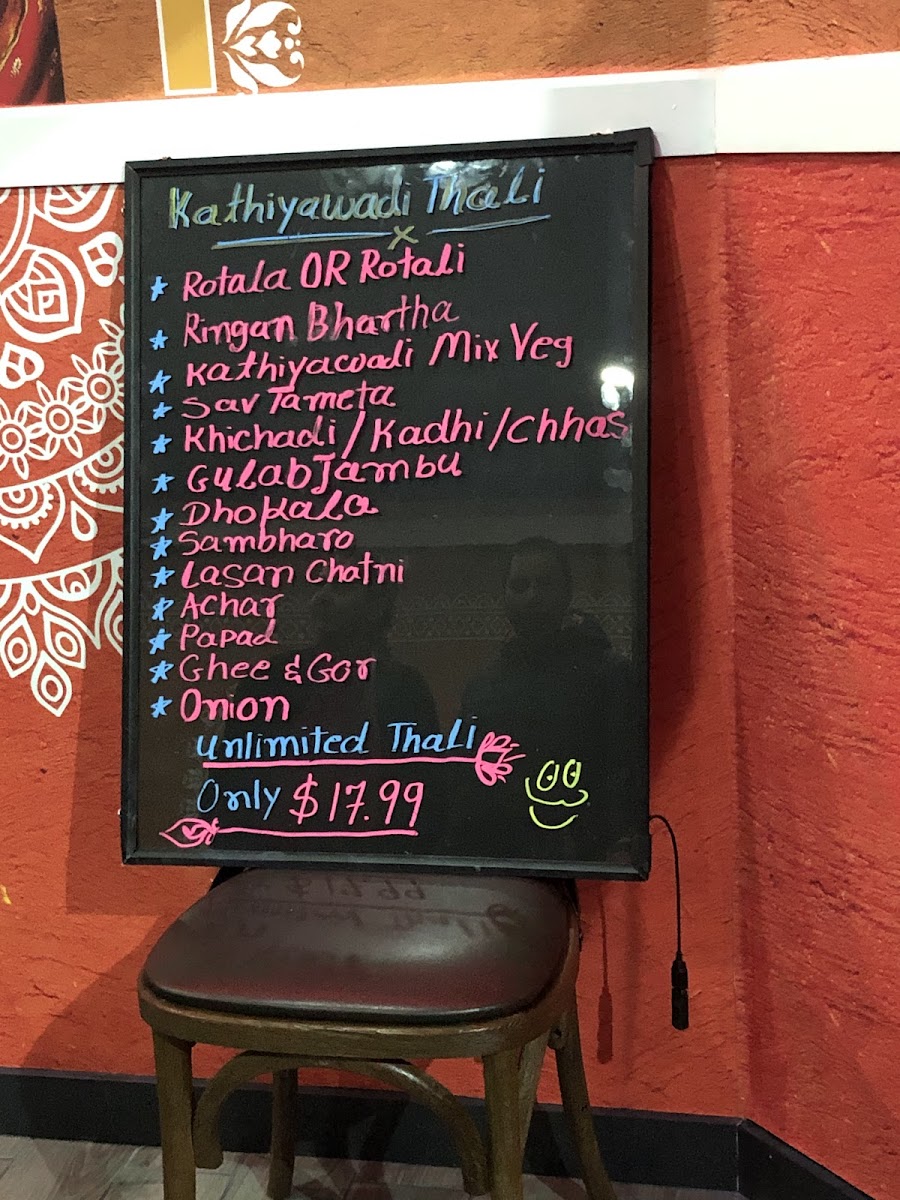 Kathiyawadi Thali
Rotala OR Rotali
Ringan Bhartha
Kathiyawadi Mix Veg
Sav Tameta
Khichadi/Kadhi/Chhas
Gulab Jambu
Dhokala
Sambharo
Lasan Chatni
Achar
Papad
Ghee & Gor
Onion
Unlimited Thali
Only $17.99